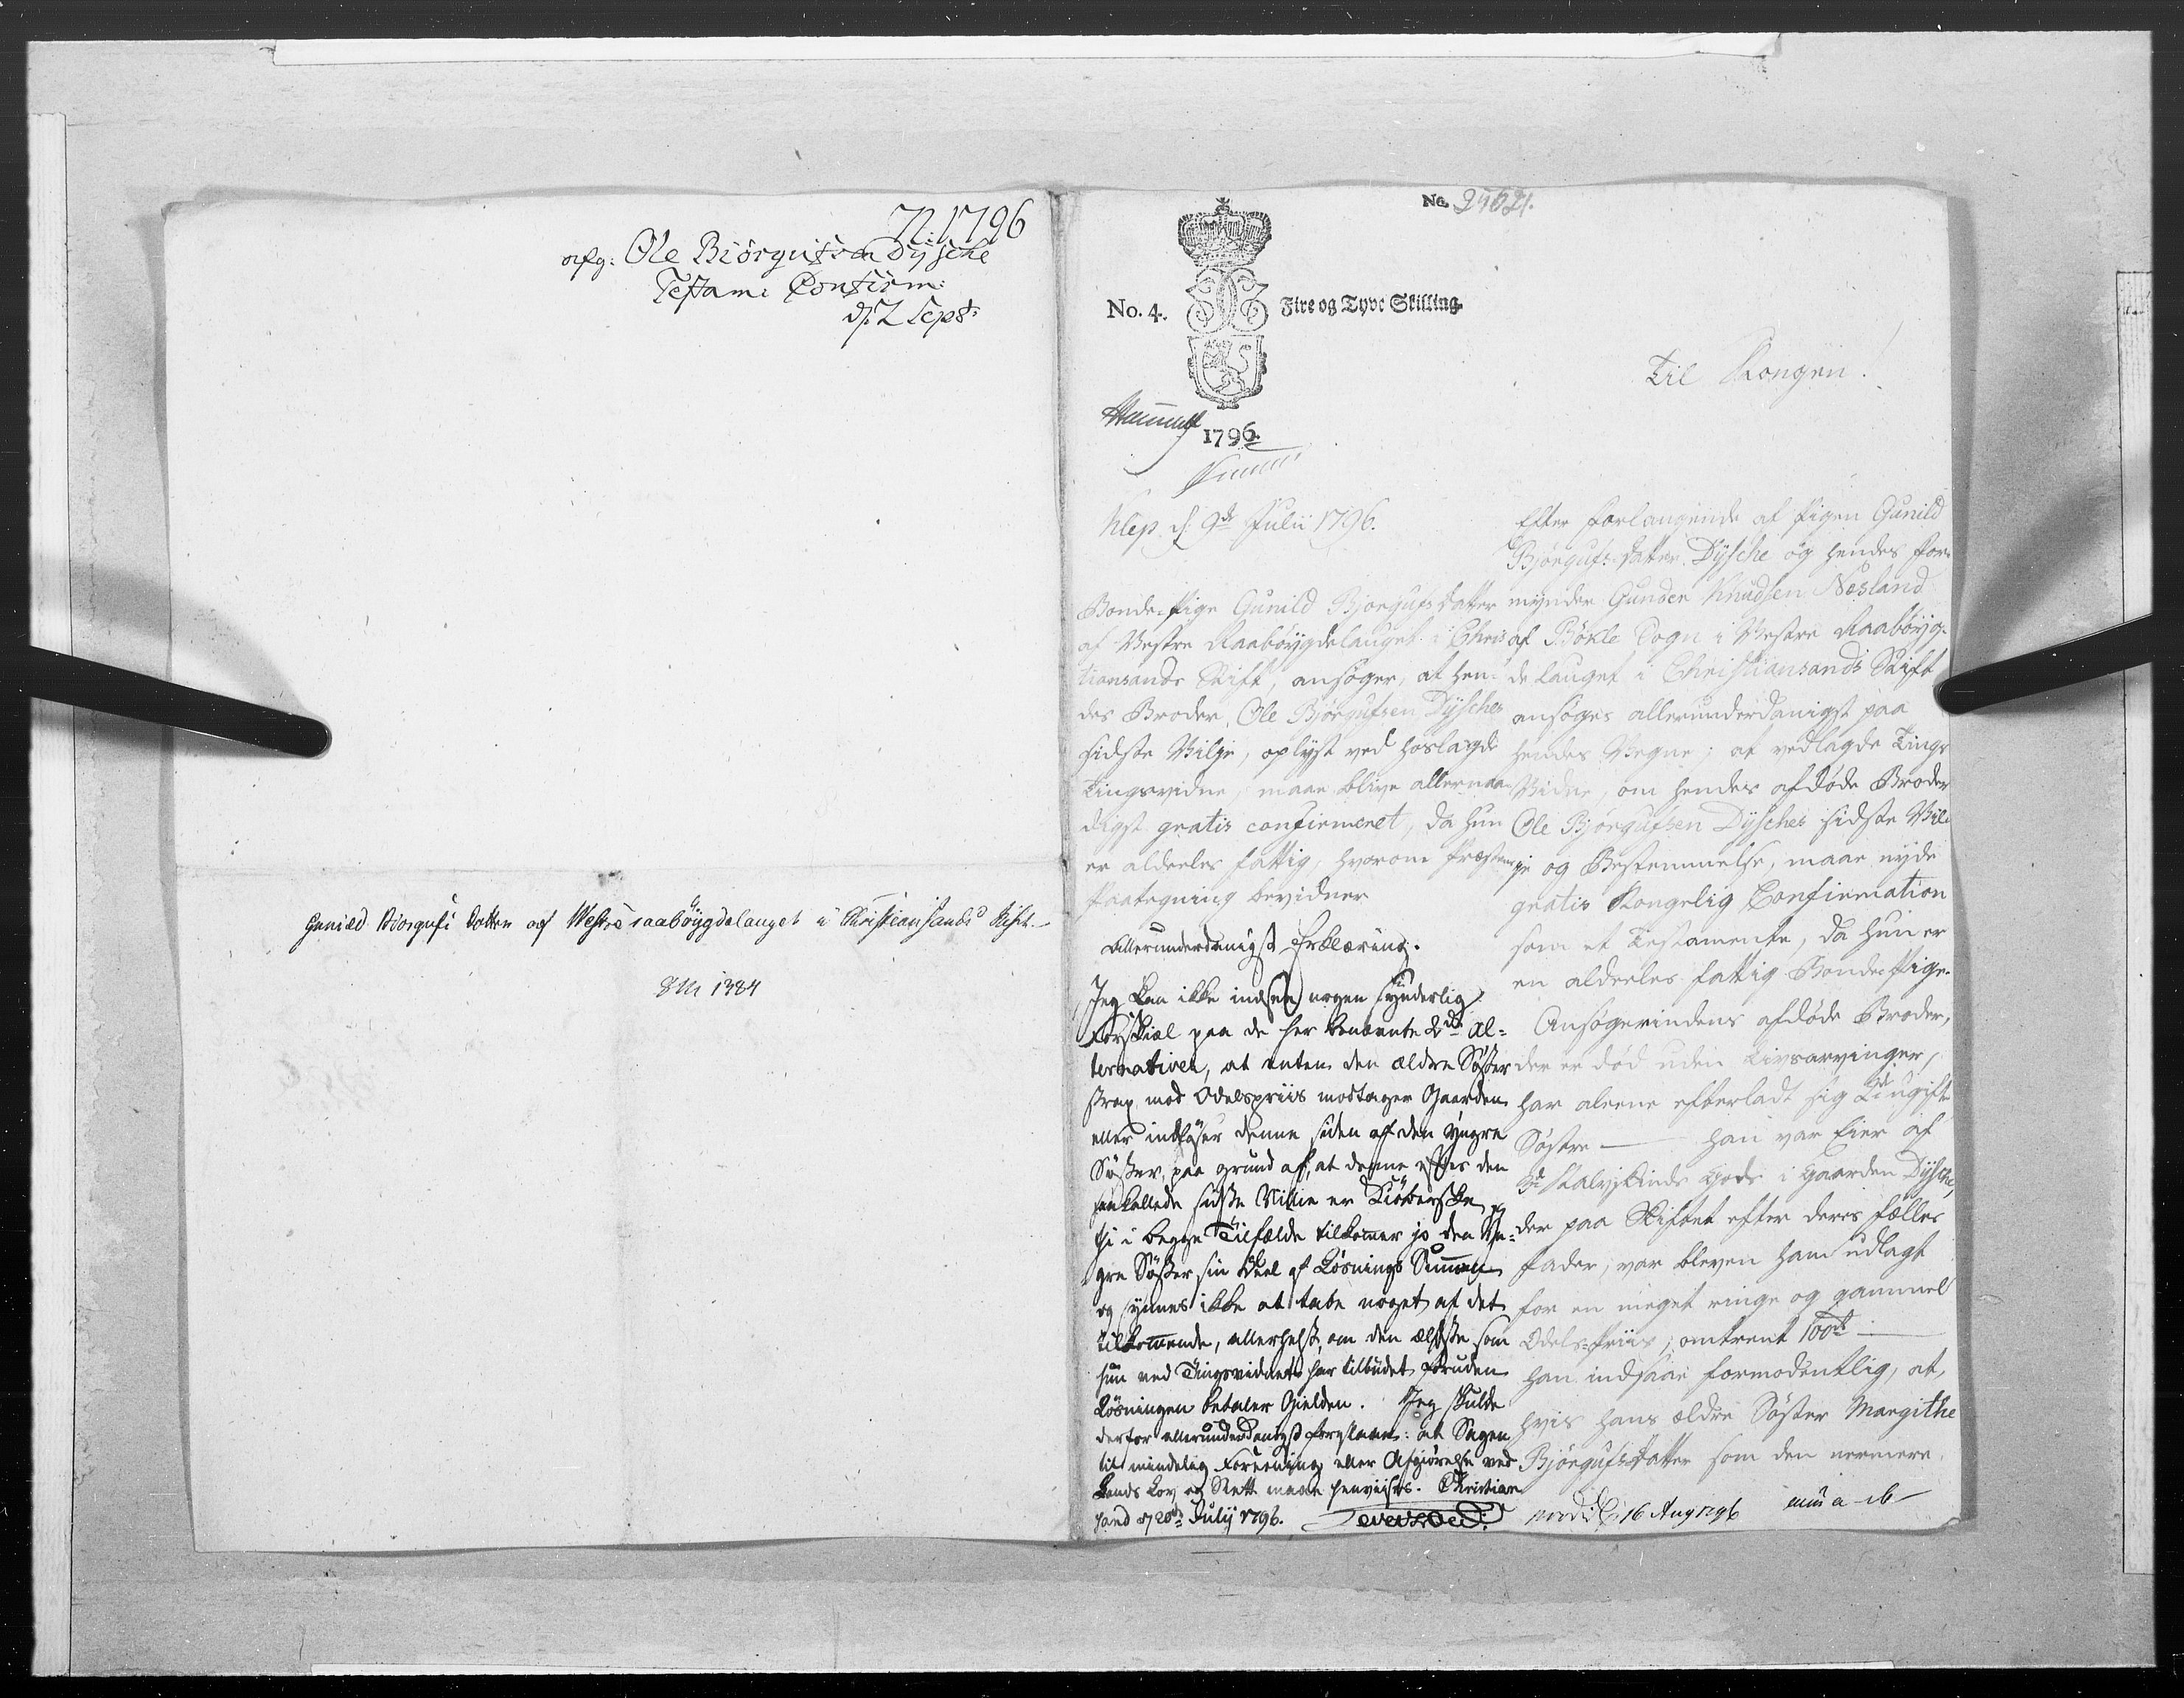 N: 1796
afg: Ole Biörgufsøn Dysche
Testam: Confirm:
d. 2 Sept:
Gunild Biörgufs Datter af Westre raabøygdelauget i Christiansands Stift.
8 M 1384
No. 24621.
No. 4. Fire og Tyve Skilling
1796.
Til Kongen!
Klep d: 9de Julii 1796.
Bonde-Pige Gunild Bjørgufsdatter
af Vestre Raabøygdelauget i Chris
tiansands Stift, ansøger, at hen-
des Broder, Ole Bjørgufsen Dysches
sidste Vilje, oplyst ved hoslagde
Tingsvidne, maae blive allernaa-
digst gratis confirmeret, da hun
er aldeeles fattig, hvorom Præstens
Paategning bevidner
Allerunderdanigst Erklæring.
Jeg kan ikke indsee nogen synderlig
Forskiæl paa de her benævnte 2de Al-
ternativer, at enten den ældre Søster
strax mod Odelspriis modtager Gaarden
eller indløser denne siden af den yngre
Søster, paa grund af, at denne efter den
saakallede sidste Villie er Kiøberske,
thi i begge Tilfælde tilkommer jo den Yn-
gre Søster sin Deel af Løsnings Summen
og synes ikke at tabe noget af det
tilkommende, allerhelst, om den ældste som
hun ved Tingsvidnet har tilbudet foruden
Løsningen betaler Gielden. Jeg skulde
derfor allerunderdanigst foreslaae: at Sagen
til mindelig Foreening eller Afgiørelse ved
Lands Lov og Rett maae henviises. Christian
sand d 20de July 1796.
Efter Forlangende af Pigen Gunild
Bjørgufs-Datter Dysche og hendes For-
mynder Gunder Knudsen Næsland
af Bøkle Sogn i Vestre Raabøyg-
delauget i Christiansands Stift
ansøges allerunderdanigst paa
hendes Vegne; at vedlagde Tings
Vidne, om hendes afdøde Broder
Ole Bjørgufsen Dysches sidste Vil-
je og Bestemmelse, maae nyde
gratis Kongelig Confirmation
som et Testamente, da hun er
en aldeeles fattig Bonde-Pige.
Ansøgerindens afdøde Broder,
der er død uden Livsarvinger,
har aleene efterladt sig 2de ugifte
Søstre — han var Eier af
3de Kalvskinds Gods i Gaarden Dysche,
der paa Skiftet efter deres fælles
Fader, var bleven ham udlagt
for en meget ringe og gammel
Odels-Priis, omtrent 100rd —
han indsaae formodentlig, at,
hvis hans ældre Søster Margithe
Bjørgufsdatter som den nermere
16 Aug 1796